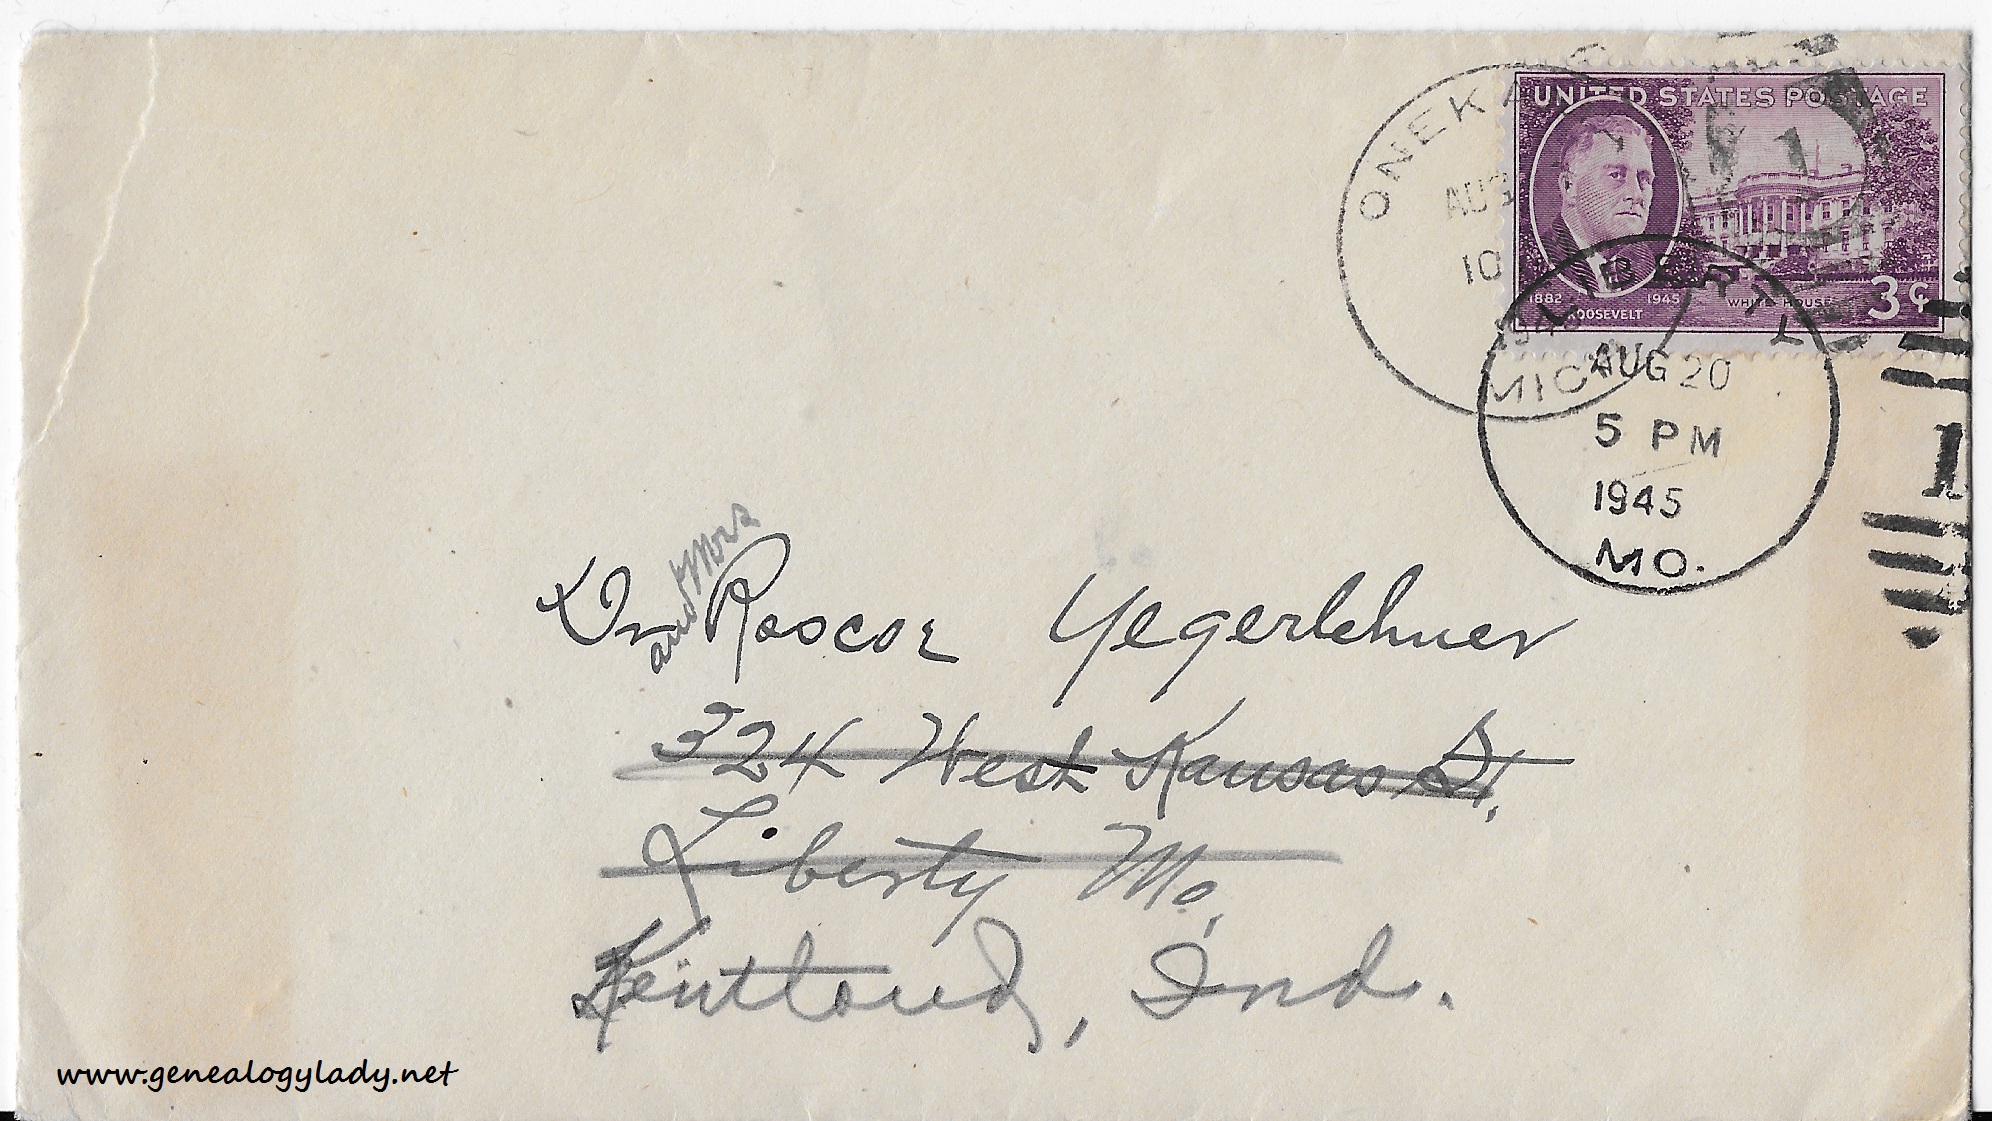 UNITED STATES POSTAGE
1882 1945
ROOSEVELT
WHITE HOUSE
3¢
1
AUG
10
1945
MICH
LIBERTY
AUG 20
5 PM
1945
MO.
1
and Mrs
Dr Roscoe Yegerlehner
324 West Kansas St.
Liberty Mo.
Kentland, Ind.
www.genealogylady.net